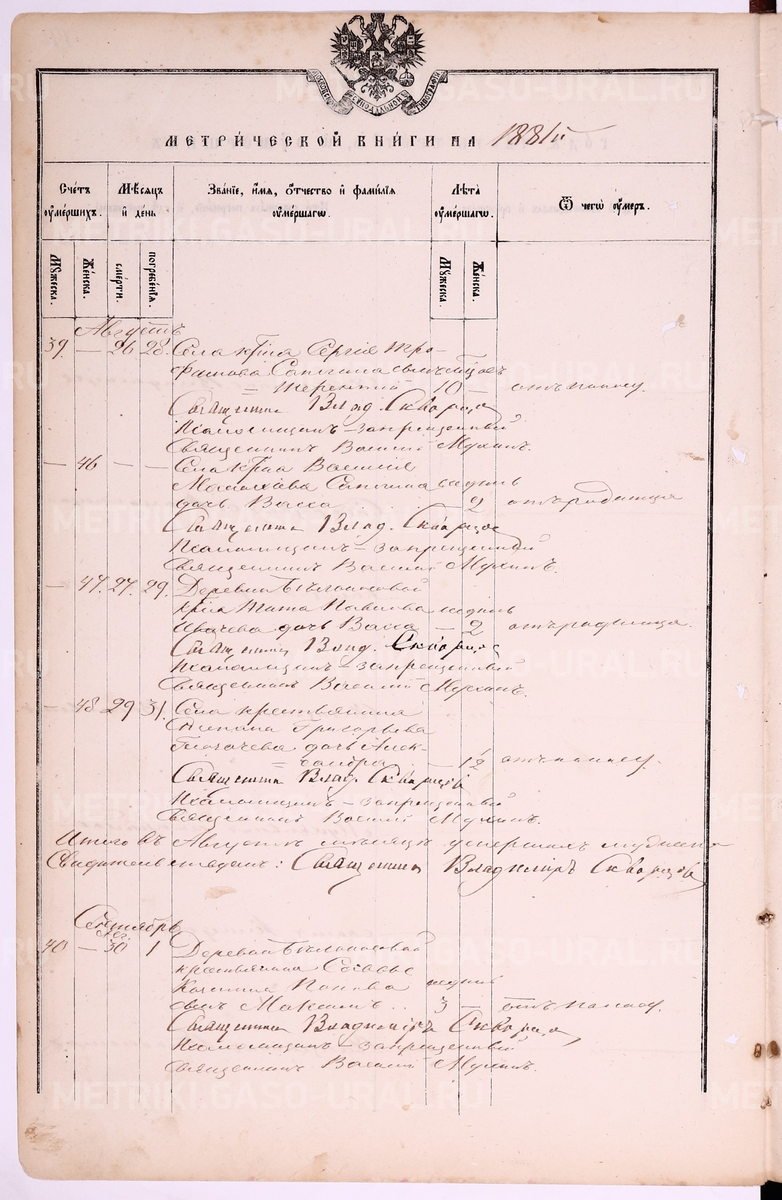 МЕТРИЧЕСКОЙ КНИГИ НА 1881й
Счетъ оумершихъ.
Мѣсяцъ и день
Званіе, имя, отчество и фамилія оумершагѡ.
Лѣта оумершагѡ.
Ѿ чегѡ оумеръ.
Мужеска.
Женска.
смерти.
погребенія.
Мужеска.
Женска.
Августъ
39 — 26 28. Села крͭнина Сергія Тро-
фимова сынъ мѣсяц.
= Терентій — 10 — отъ поносу.
Священникъ Влад. Скворцов
Псаломщикъ – запрещенный
Священникъ Василій Мухинъ.
— 46 — — Села крͭнина Василія
недѣль
дочь Васса — 2 отъ родимца
Священникъ Влад. Скворцов
Псаломщикъ – запрещенный
Священникъ Василій Мухинъ.
— 47. 27. 29. Деревни
Павлова недѣль
дочь Васса — 2 отъ родимца.
Священникъ Влад. Скворцов
Псаломщикъ – запрещенный
Священникъ Василій Мухинъ.
— 48 29 31. Села крестьянина
Степана Григорьева
дочь Алек-
= сандра — 1½ отъ поносу.
Священникъ Влад. Скворцов
Псаломщикъ – запрещенный
Священникъ Василій Мухинъ.
Итого въ Августѣ мѣсяцѣ умершихъ
Свидѣтельствуемъ: Священникъ Владиміръ Скворцов
Сентябрь
40 — 30 1 Деревни
крестьянина
Попова недѣль
сынъ Максимъ .. 3 — отъ поносу.
Священникъ Владиміръ Скворцов,
Псаломщикъ – запрещенный
Священникъ Василій Мухинъ.
METRIKI.GASO-URAL.RU